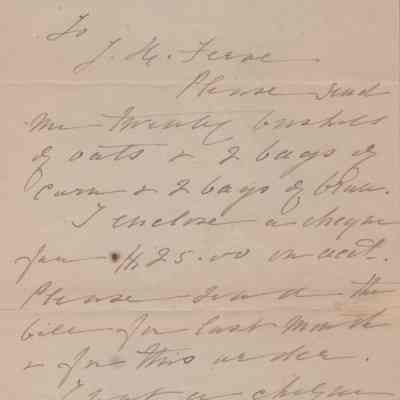 To
J. H.
Please send
me Twenty bushels
of oats & 2 bags of
corn & 2 bags of bran.
I enclose a cheque
for $25.00 on acct.
Please send the
bill for last month
& for this order.
I put a cheque